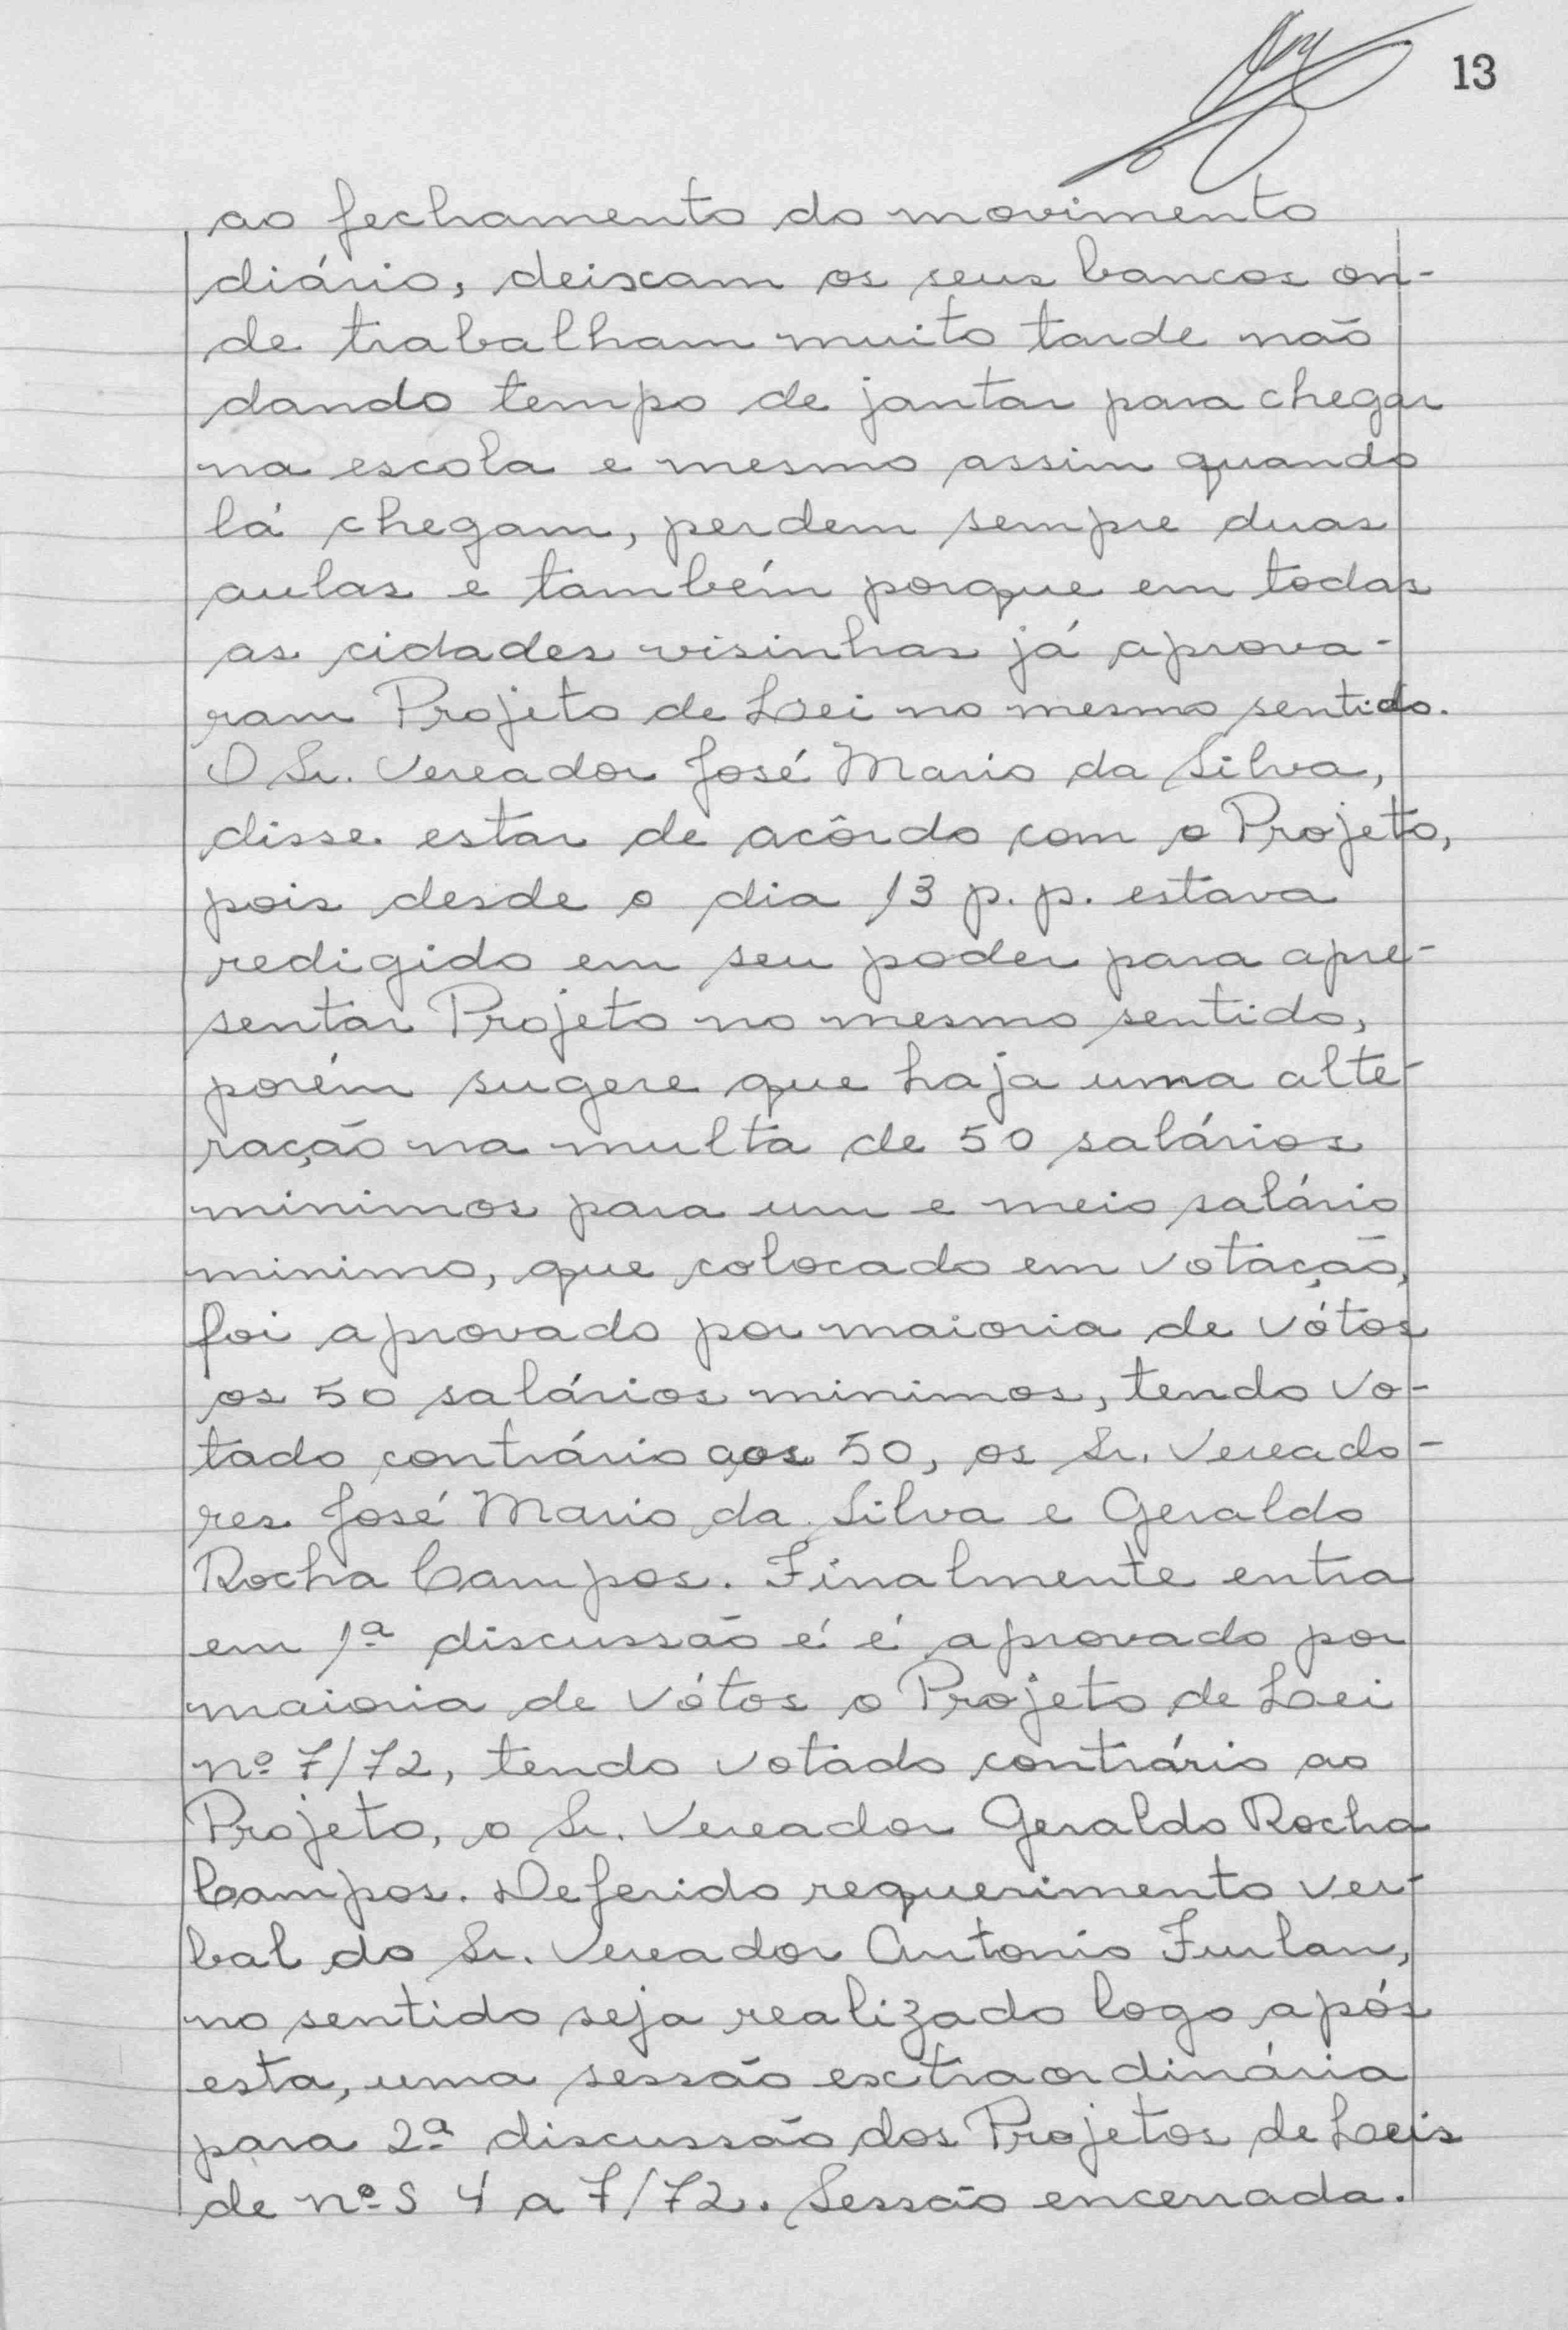 13
ao fechamento do movimento
diário, deixam os seus bancos on-
de trabalham muito tarde não
dando tempo de jantar para chegar
na escola e mesmo assim quando
lá chegam, perdem sempre duas
aulas e também porque em todas
as cidades visinhas já aprova-
ram Projeto de Lei no mesmo sentido.
O Sr. Vereador José Mario da Silva,
disse estar de acôrdo com o Projeto,
pois desde o dia 13 p.p. estava
redigido em seu poder para apre-
sentar Projeto no mesmo sentido,
porém sugere que haja uma alte-
ração na multa de 50 salários
minimos para um e meio salário
minimo, que colocado em votação,
foi aprovado por maioria de vótos
os 50 salários minimos, tendo vo-
tado contrário aos 50, os Sr. Vereado-
res José Mario da Silva e Geraldo
Rocha Campos. Finalmente entra
em 1ª discussão é é aprovado por
maioria de vótos o Projeto de Lei
nº 7/72, tendo votado contrário ao
Projeto, o Sr. Vereador Geraldo Rocha
Campos. Deferido requerimento ver-
bal do Sr. Vereador Antonio Furlan,
no sentido seja realizado logo após
esta, uma sessão extraordinária
para 2ª discussão dos Projetos de Leis
de nºs 4 a 7/72. Sessão encerrada.